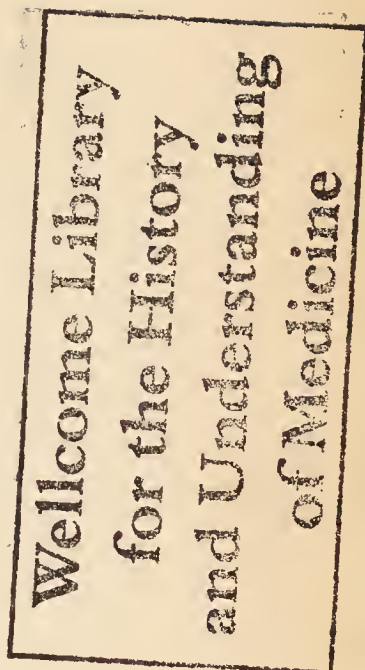 Wellcome Library
for the History
and Understanding
of Medicine